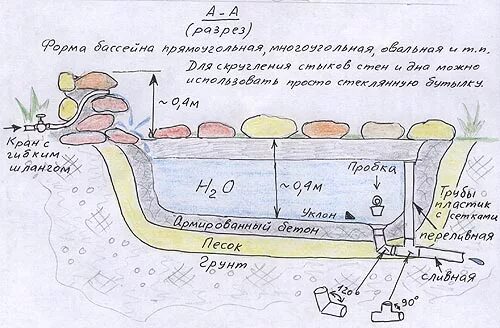 А-А
(разрез)
Форма бассейна прямоугольная, многоугольная, овальная и т.п.
Для скругления стыков стен и дна можно
использовать просто стеклянную бутылку.
~ 0,4м
Кран с
гибким
шлангом
H₂O
~ 0,4м
Пробка
Уклон
Армированный бетон
Песок
Грунт
Трубы
пластик
с сетками
переливная
сливная
120°
90°